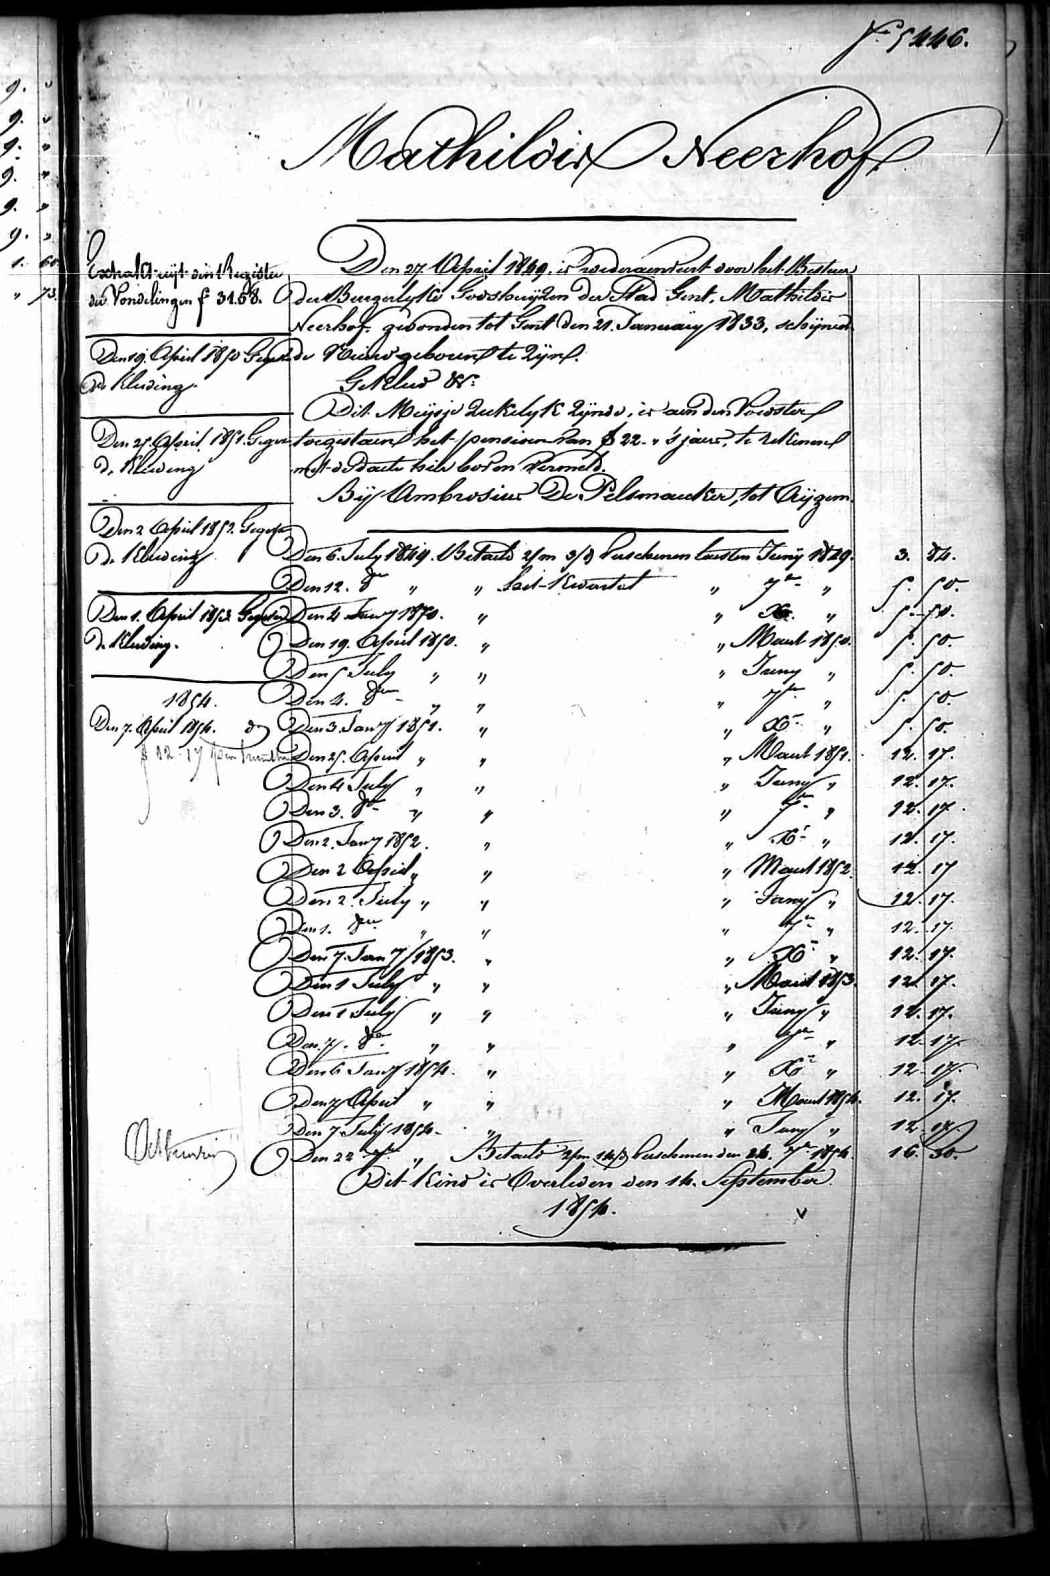 N.º 5446.
Mathildis Neerhof.
Extrakt uijt den Register
der Vondelingen f 31.68.
Den 19. April 1850 Gegeven
de Kleeding.
Den 25. April 1851. Gegeven
de Kleeding
Den 2 April 1852. Gegeven
de Kleeding
Den 1. April 1853 Gegeven
de Kleeding.
1854.
Den 7. April 1854. dº
12-17 per trimester
Den 27 April 1849, is wederaenveert door het Bestuer
der Burgerlyke Godshuyzen der Stad Gent, Mathildis
Neerhof. gevonden tot Gent den 21. January 1833, schijnen-
de Nieuw geboren te zijn.
Gekleed &c:
Dit Meijsje ziekelyk zijnde, is aen den Voedster
toegestaen het pensioen van f 22. " 's jaers, te rekenen
met de daete hier boven vermeld.
Bij Ambrosius De Pelsmaecker, tot Aijgem.
Den 6. July 1849. Betaeld 2/m 3/d verschenen laesten Juny 1849. 3. 84.
Den 12. 8er " " het kwartael " 7er " 5. 50.
Den 4 Jan'y 1850. " " Xr. " 5. 50.
Den 19. April 1850. " " Maert 1850. 5. 50.
Den 5 July " " " Juny " 5. 50.
Den 4. 8er " " " 7er " 5. 50.
Den 3. Jan'y 1851. " " Xr " 5. 50.
Den 25. April " " " Maert 1851. 12. 17.
Den 4 July " " " Juny " 12. 17.
Den 3. 8er " " " 7er " 12. 17.
Den 2. Jan'y 1852. " " Xr " 12. 17.
Den 2 April " " " Maert 1852. 12. 17
Den 2. July " " " Juny " 12. 17.
Den 1. 8er " " " 7er " 12. 17.
Den 7. Jan'y 1853. " " Xr " 12. 17.
Den 1 July " " " Maert 1853. 12. 17.
Den 1 July " " " Juny " 12. 17.
Den 7. 8er " " " 7er " 12. 17.
Den 6 Jan'y 1854. " " Xr " 12. 17.
Den 7 April " " " Maert 1854. 12. 17.
Den 7 July 1854. " " Juny " 12. 17
Den 22 7er " Betaeld 2/m 14/d verschenen den 24. 7er 1854. 16. 30.
Dit Kind is Overleden den 14. September
1854.